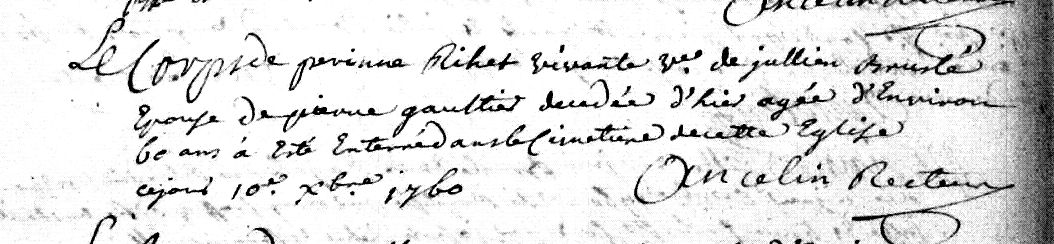 Le Corps de perinne Rihet vivante ve. de jullien Bruslé
Epouse de pierre gaultier decedée d'hier agée d'Environ
60 ans à Esté Enterré dans le Cimetiere de cette Eglise
ce jour 10e. xbre 1760
Ancelin Recteur